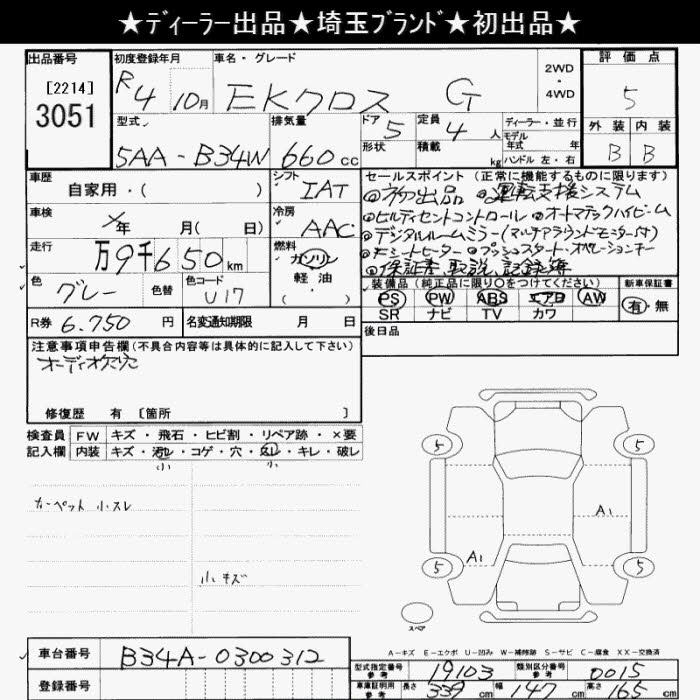 ★ディーラー出品★埼玉ブランド★初出品★
出品番号
[2214]
3051
初度登録年月
R4 10月
車名・グレード
EKクロス G
2WD
・
4WD
評価点
5
外装 内装
B B
型式
5AA-B34W
排気量
660cc
ドア 5
形状
定員 4人
積載 kg
ディーラー・並行
モデル年式 年
ハンドル 左・右
車歴
自家用・( )
シフト
IAT
車検
年 月( 日)
冷房
AAC
走行
万9千650km
燃料
ガソリン
軽油
( )
色
グレー
色替
色コード
U17
R券 6.750円
名変通知期限 月 日
セールスポイント (正常に機能するものに限ります)
◎初出品 ◎運転支援システム
◎ヒルディセントコントロール ◎オートマチックハイビーム
◎デジタルルームミラー(マルチアラウンドモニター付)
◎シートヒーター ◎プッシュスタート・オペレーションキー
◎保証書、取説、記録簿
装備品 (純正品に限り○をつけてください)
PS PW ABS エアB AW
SR ナビ TV カワ
新車保証書
有・無
後日品
注意事項申告欄(不具合内容等は具体的に記入して下さい)
オーディオ欠穴
修復歴 有 [箇所 ]
検査員 FW キズ・飛石・ヒビ割・リペア跡・×要
記入欄 内装 キズ・汚れ・コゲ・穴・スレ・キレ・破レ
小 小
カーペット小スレ
小キズ
5 5
A1
A1
5 5
スペア
A-キズ E-エクボ U-凹み W-補修跡 S-サビ C-腐食 XX-交換済
車台番号 B34A-0300312
登録番号
型式指定番号 参考 19103
類別区分番号 参考 0015
車庫証明用 参考 長さ 339cm 幅 147cm 高さ 165cm